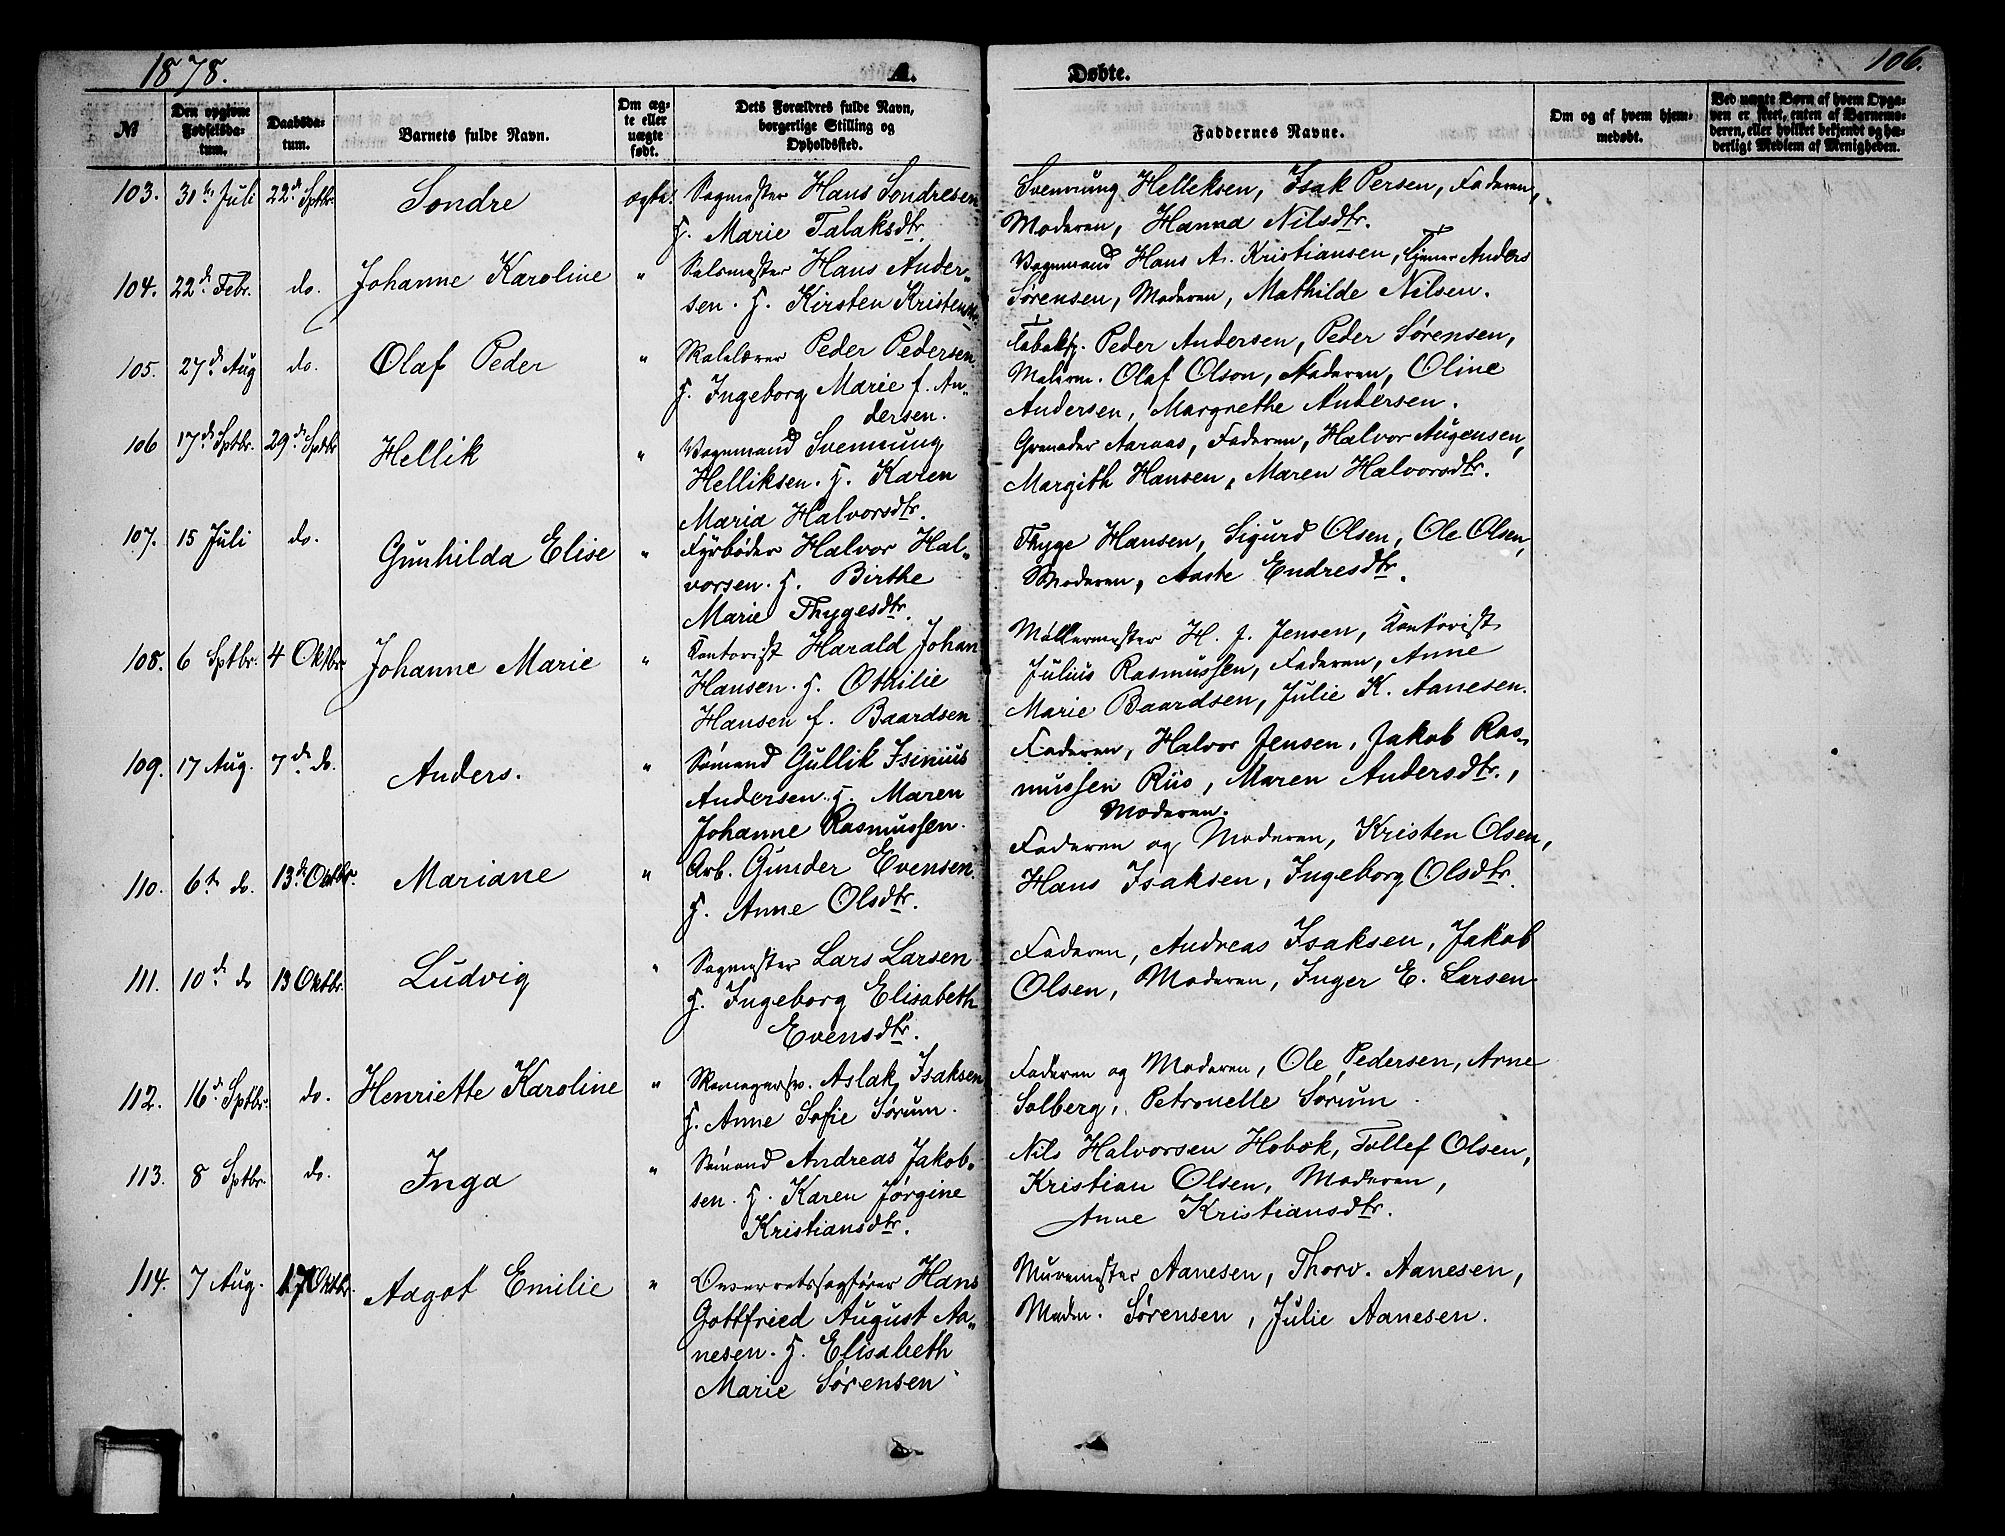 1878.
A.
Døbte.
106.
№
Den opgivne Fødselsdatum.
Daabsdatum.
Barnets fulde Navn.
Om ægte eller uægte født.
Dets Forældres fulde Navn, borgerlige Stilling og Opholdssted.
Faddernes Navne.
Om og af hvem hjemmedøbt.
Ved uægte Børn af hvem Opgaven er skeet, enten af Barnemoderen, eller hvilket bekjendt og hæderligt Medlem af Menigheden.
103. 31te Juli 22de Sptbr. Sondre ægte. Sagmester Hans Sondresen
H. Marie Talaksdtr.
Svennung Helleksen, Isak Persen, Faderen,
Moderen, Hanna Nilsdtr.
104. 22de Febr. do. Johanne Karoline " Hans Ander-
sen. H. Kirsten Kristensdtr
Vognmand Hans A. Kristiansen, Tjener Anders
Sørensen, Moderen, Mathilde Nilsen.
105. 27de Aug do. Olaf Peder " Skolelærer Peder Pedersen.
H. Ingeborg Marie f. An-
dersen.
Peder Andersen, Peder Sørensen,
Malerm. Olaf Olson, Faderen, Oline
Andersen, Margrethe Andersen.
106 17de Sptbr. 29de Sptbr Hellik " Vognmand Svennung
Helliksen. H. Karen
Maria Halvorsdtr.
Aaraas, Faderen, Halvor Augensen,
Margith Hansen, Maren Halvorsdtr.
107. 15 Juli do. Gunhilda Elise " Fyrbøder Halvor Hal-
vorsen. H. Birthe
Marie Thygesdtr.
Thyge Hansen, Sigurd Olsen, Ole Olsen,
Moderen, Aaste Endresdtr.
108. 6 Sptbr. 4 Oktbr. Johanne Marie " Kontorist Harald Johan
Hansen. H. Othilie
Hansen f. Baardsen
Møllermester H. J. Jensen, Kontorist
Julius Rasmussen, Faderen, Anne
Marie Baardsen, Julie K. Aanesen.
109. 17 Aug. 7de do. Anders. " Sømand Gullik Isinius
Andersen. H. Maren
Johanne Rasmussen.
Faderen, Halvor Jensen, Jakob Ras-
mussen Riis, Maren Andersdtr.,
Moderen.
110. 6te do. 13de Oktbr. Mariane " Arb. Gunder Evensen.
H. Anne Olsdtr.
Faderen og Moderen, Kristen Olsen,
Hans Isaksen, Ingeborg Olsdtr.
111. 10de do 13 Oktbr. Ludvig " Sagmester Lars Larsen
H. Ingeborg Elisabeth
Evensdtr.
Faderen, Andreas Isaksen, Jakob
Olsen, Moderen, Inger E. Larsen
112. 16de Sptbr. do. Henriette Karoline " Skomagersv. Aslak Isaksen
H. Anne Sofie Sørum.
Faderen og Moderen, Ole Pedersen, Arne
Solberg, Petronelle Sørum.
113. 8 Sptbr. do. Inga " Sømand Andreas Jakob-
sen. H. Karen Jørgine
Kristiansdtr.
Nils Halvorsen Hobok, Tollef Olsen,
Kristian Olsen, Moderen,
Anne Kristiansdtr.
114. 7 Aug. 17 Oktbr. Aagot Emilie " Overretssagfører Hans
Gottfried August Aa-
nesen. H. Elisabeth
Marie Sørensen
Muremester Aanesen, Thorv. Aanesen,
Madm. Sørensen, Julie Aanesen.